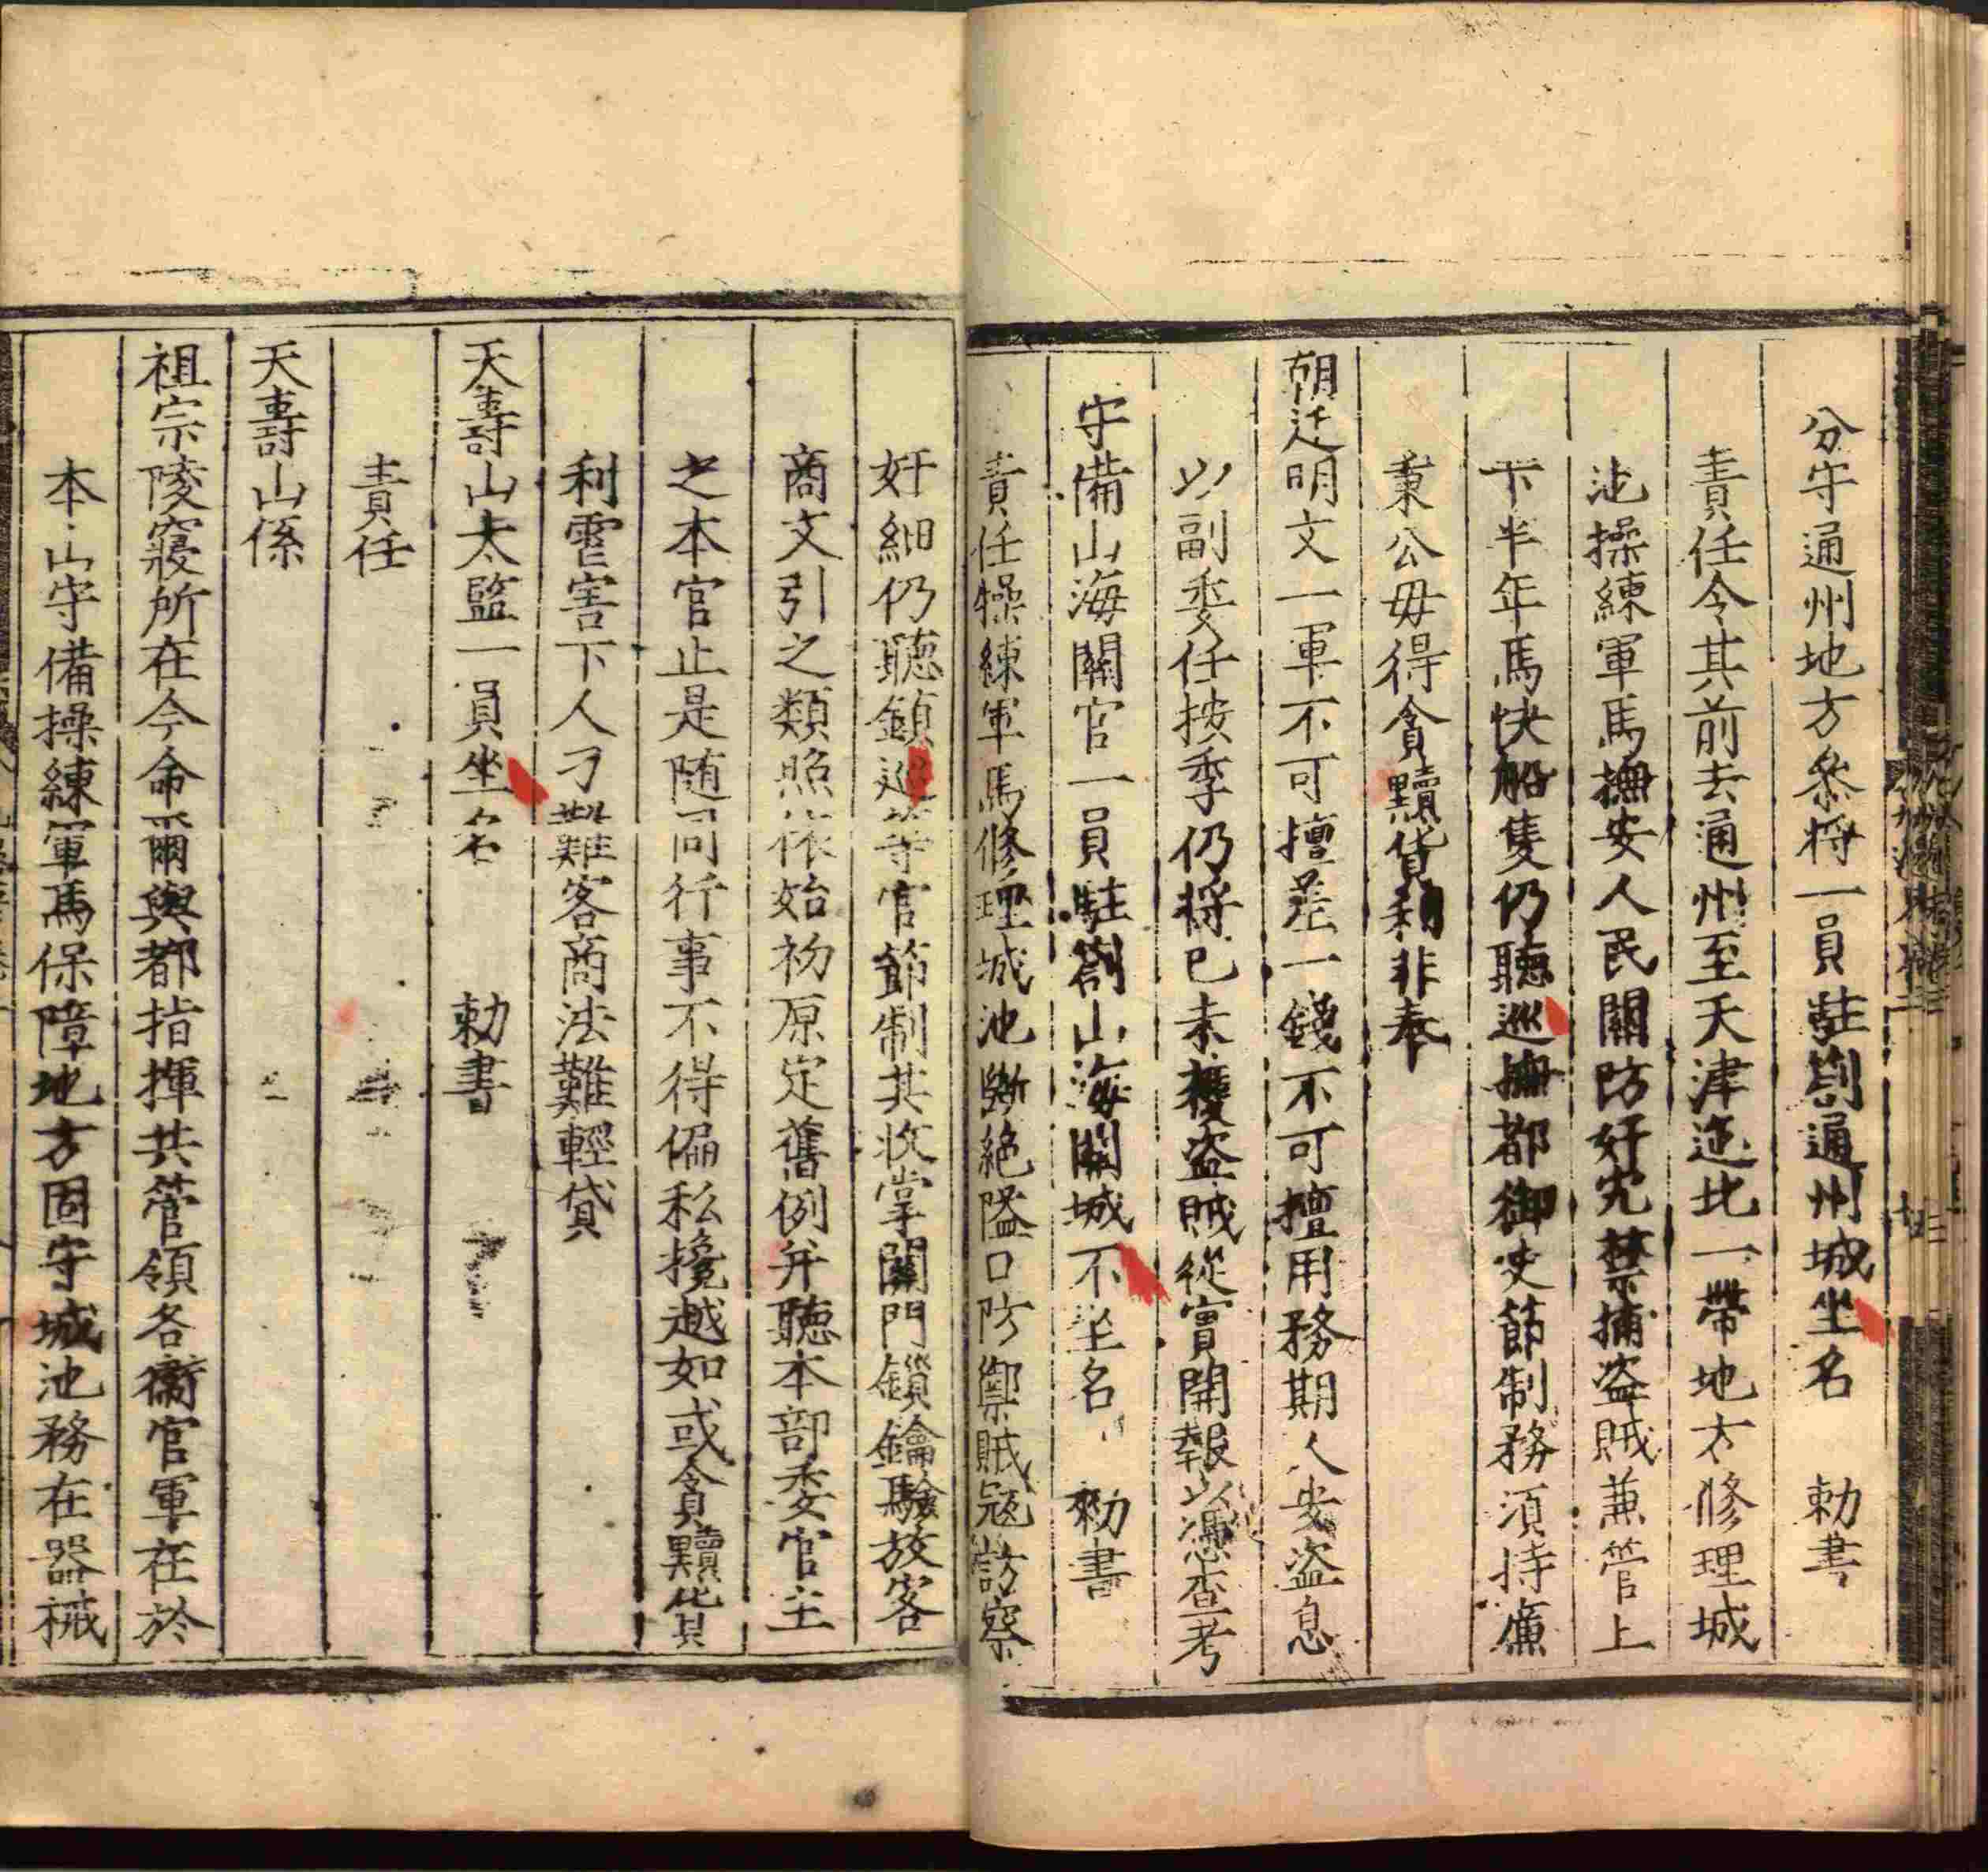 分守通州地方叅将一員駐劄通州城坐名　勅書
責任令其前去通州至天津迤北一帶地方修理城
池操練軍馬撫安人民關防奸宄禁捕盗賊兼管上
下半年馬快船隻仍聽巡撫都御史節制務湏持廉
秉公毋得貪黷貨利非奉
朝廷明文一軍不可擅差一錢不可擅用務期人安盗息
以副委任按季仍将已未獲盗賊從實開報以憑查考
守備山海關官一員駐劄山海關城不坐名　勑書
責任操練軍馬修理城池斷絶隘口防禦賊寇訪察
奸細仍聽鎮巡等官節制其收掌關門鎖鑰驗放客
商文引之類照依始初原定舊例弁聽本部委官主
之本官止是随同行事不得偏私攙越如或貪黷貨
利霍害下人刁難客商法難輕貸
天壽山太監一員坐名　勅書
責任
天壽山係
祖宗陵寢所在今命爾與都指揮共管領各衞官軍在於
本山守備操練軍馬保障地方固守城池務在器械